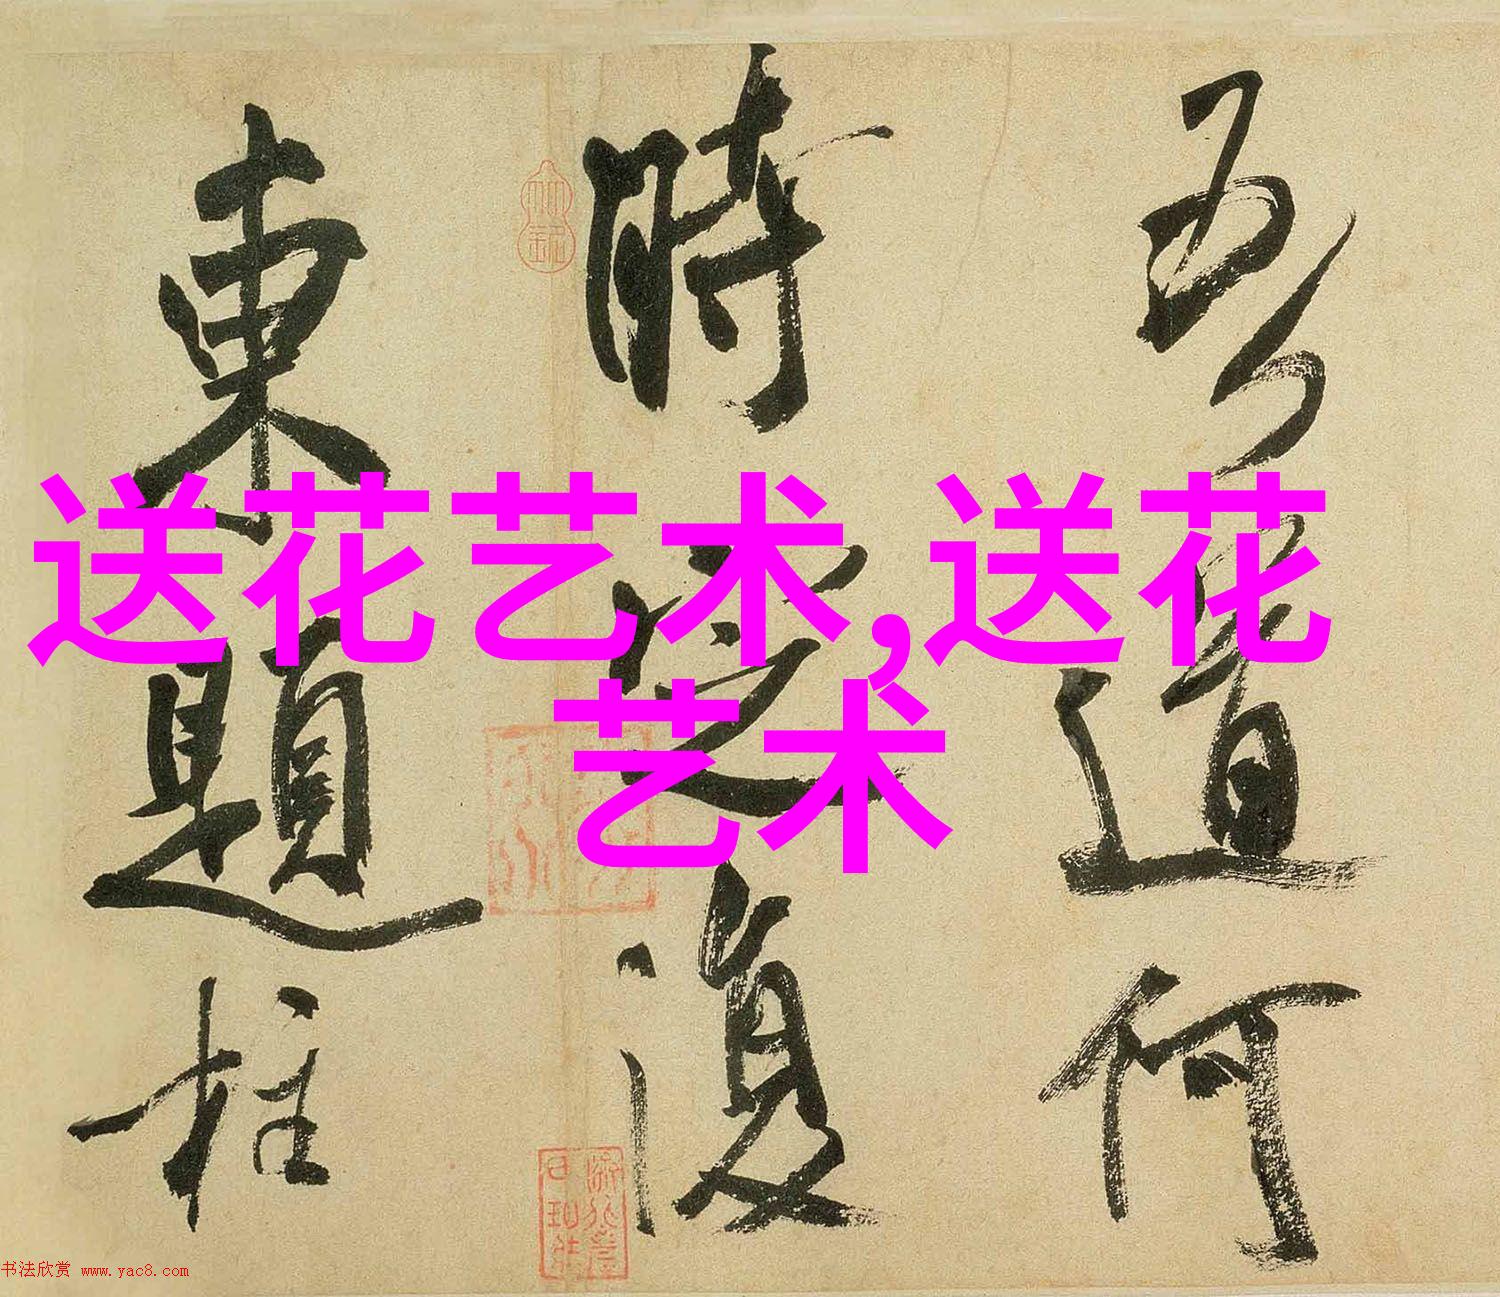 送花艺术,送花
艺术
吾道何
時還復
東題柱
书法欣赏 www.yac8.com